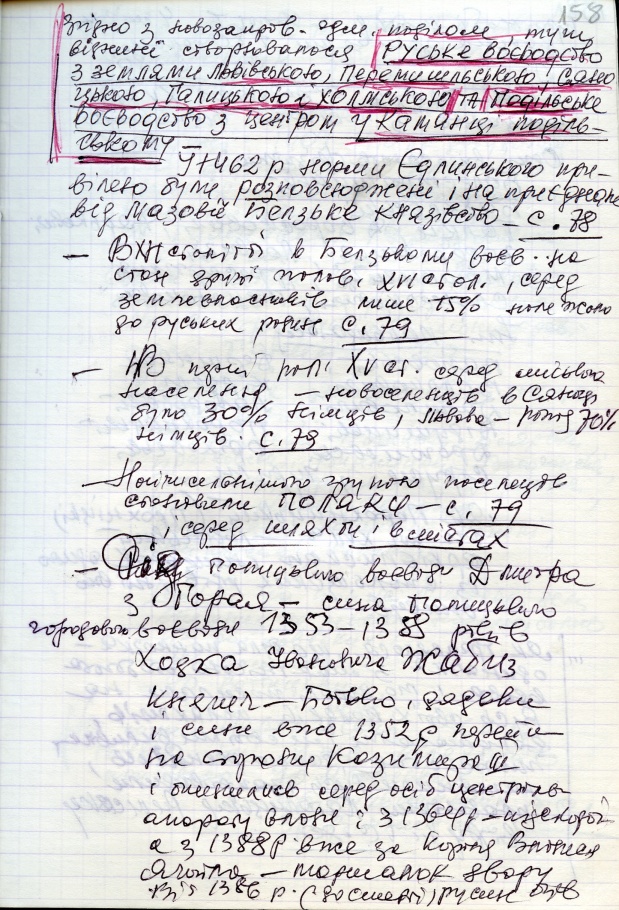 158
згідно з новозапров. адм. поділом, тут
віднині створювалося Руське воєводство
з землями Львівською, Перемишельською, Сяно
цькою, Галицькою і Холмською та Подільське
воєводство з центром у Камянці подiль-
ському
У 1462 р норми Єдлинського при-
вілею були розповсюджені і на приєднане
від Мазовії Белзьке князівство – с. 78
– В XVI столітті в Белзькому воєв. на
стан другої полов. XVI стол., серед
землевласників лише 15% належало
до руських родин с. 79
– В першій пол. XV ст. серед міського
населення – новоселенців в Сяноці
було 30% німців, Львова – понад 70%
німців. с. 79
– Найчисельнішою групою поселенців
становили поляки – с. 79
і серед шляхти і в містах
– Рід галицького воєводи Дмитра
з Горая – сина галицького
городового воєводи 1353–1388 років
Ходка Івановича
– батько, дядьки
і сини вже 1352 р перейшли
на сторону Казимира III
і опинились серед осіб центральн
апарату влади і з 1364р –
а з 1388р вже за короля Владислава
Ягайла – маршалок двору
1386 р.